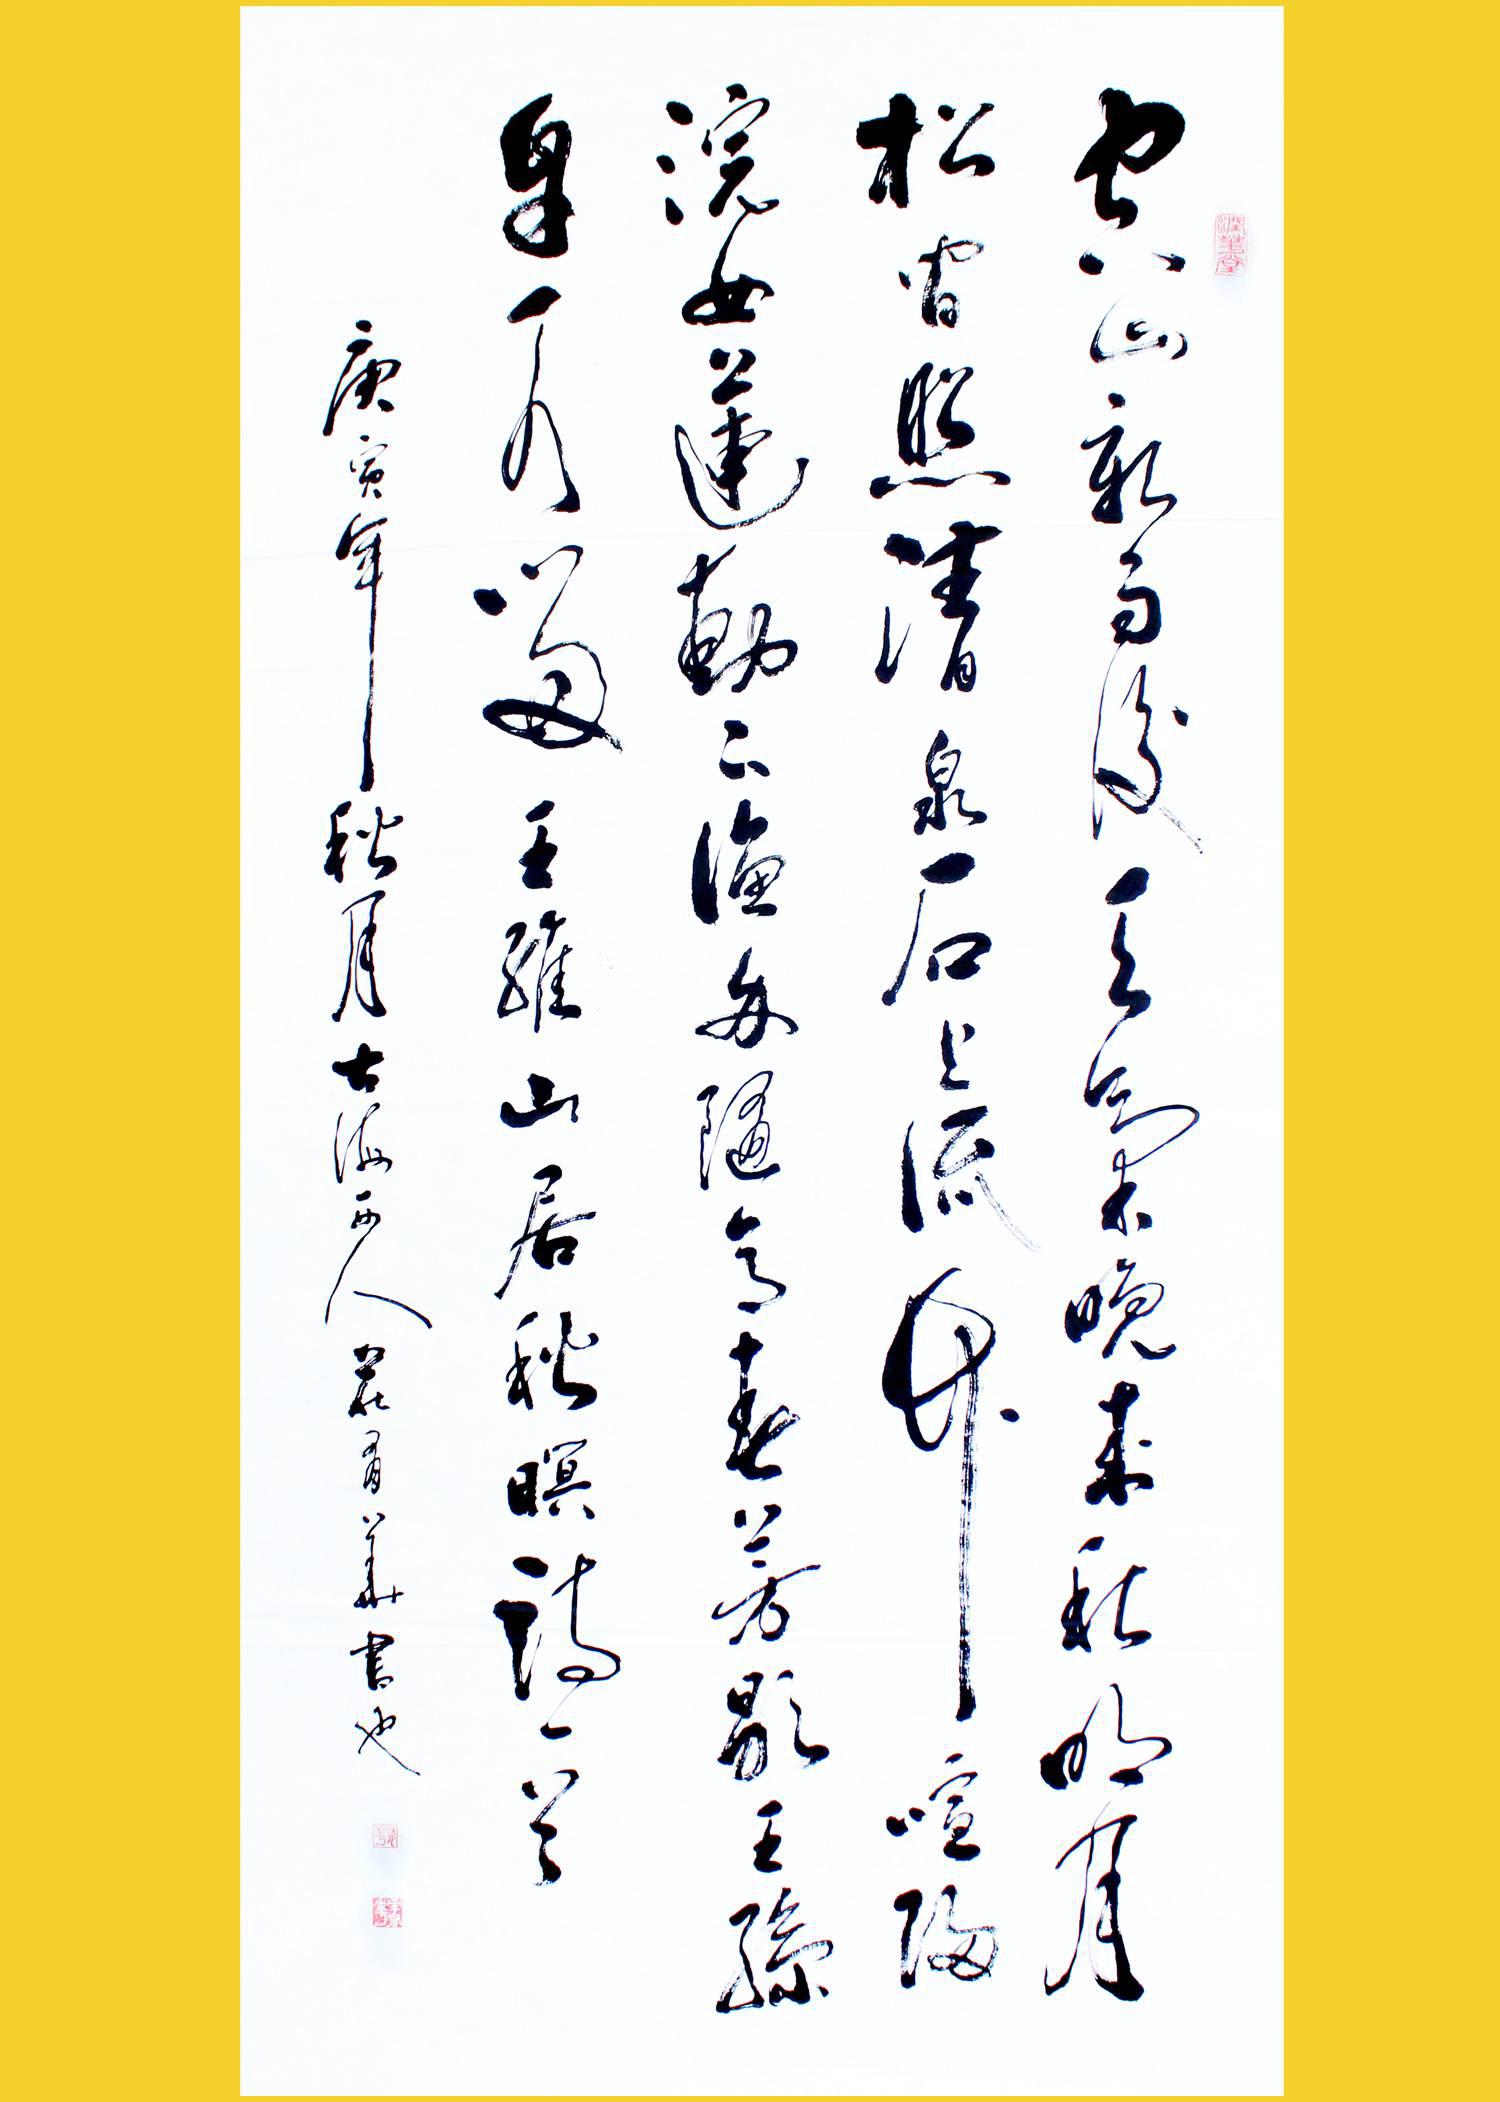 空山新雨後天氣晚來秋明月
松間照清泉石上流竹喧歸
浣女蓮動下漁舟隨意春芳歇王孫
自可留王維山居秋暝詩一首
庚寅年秋月古海西人華書也